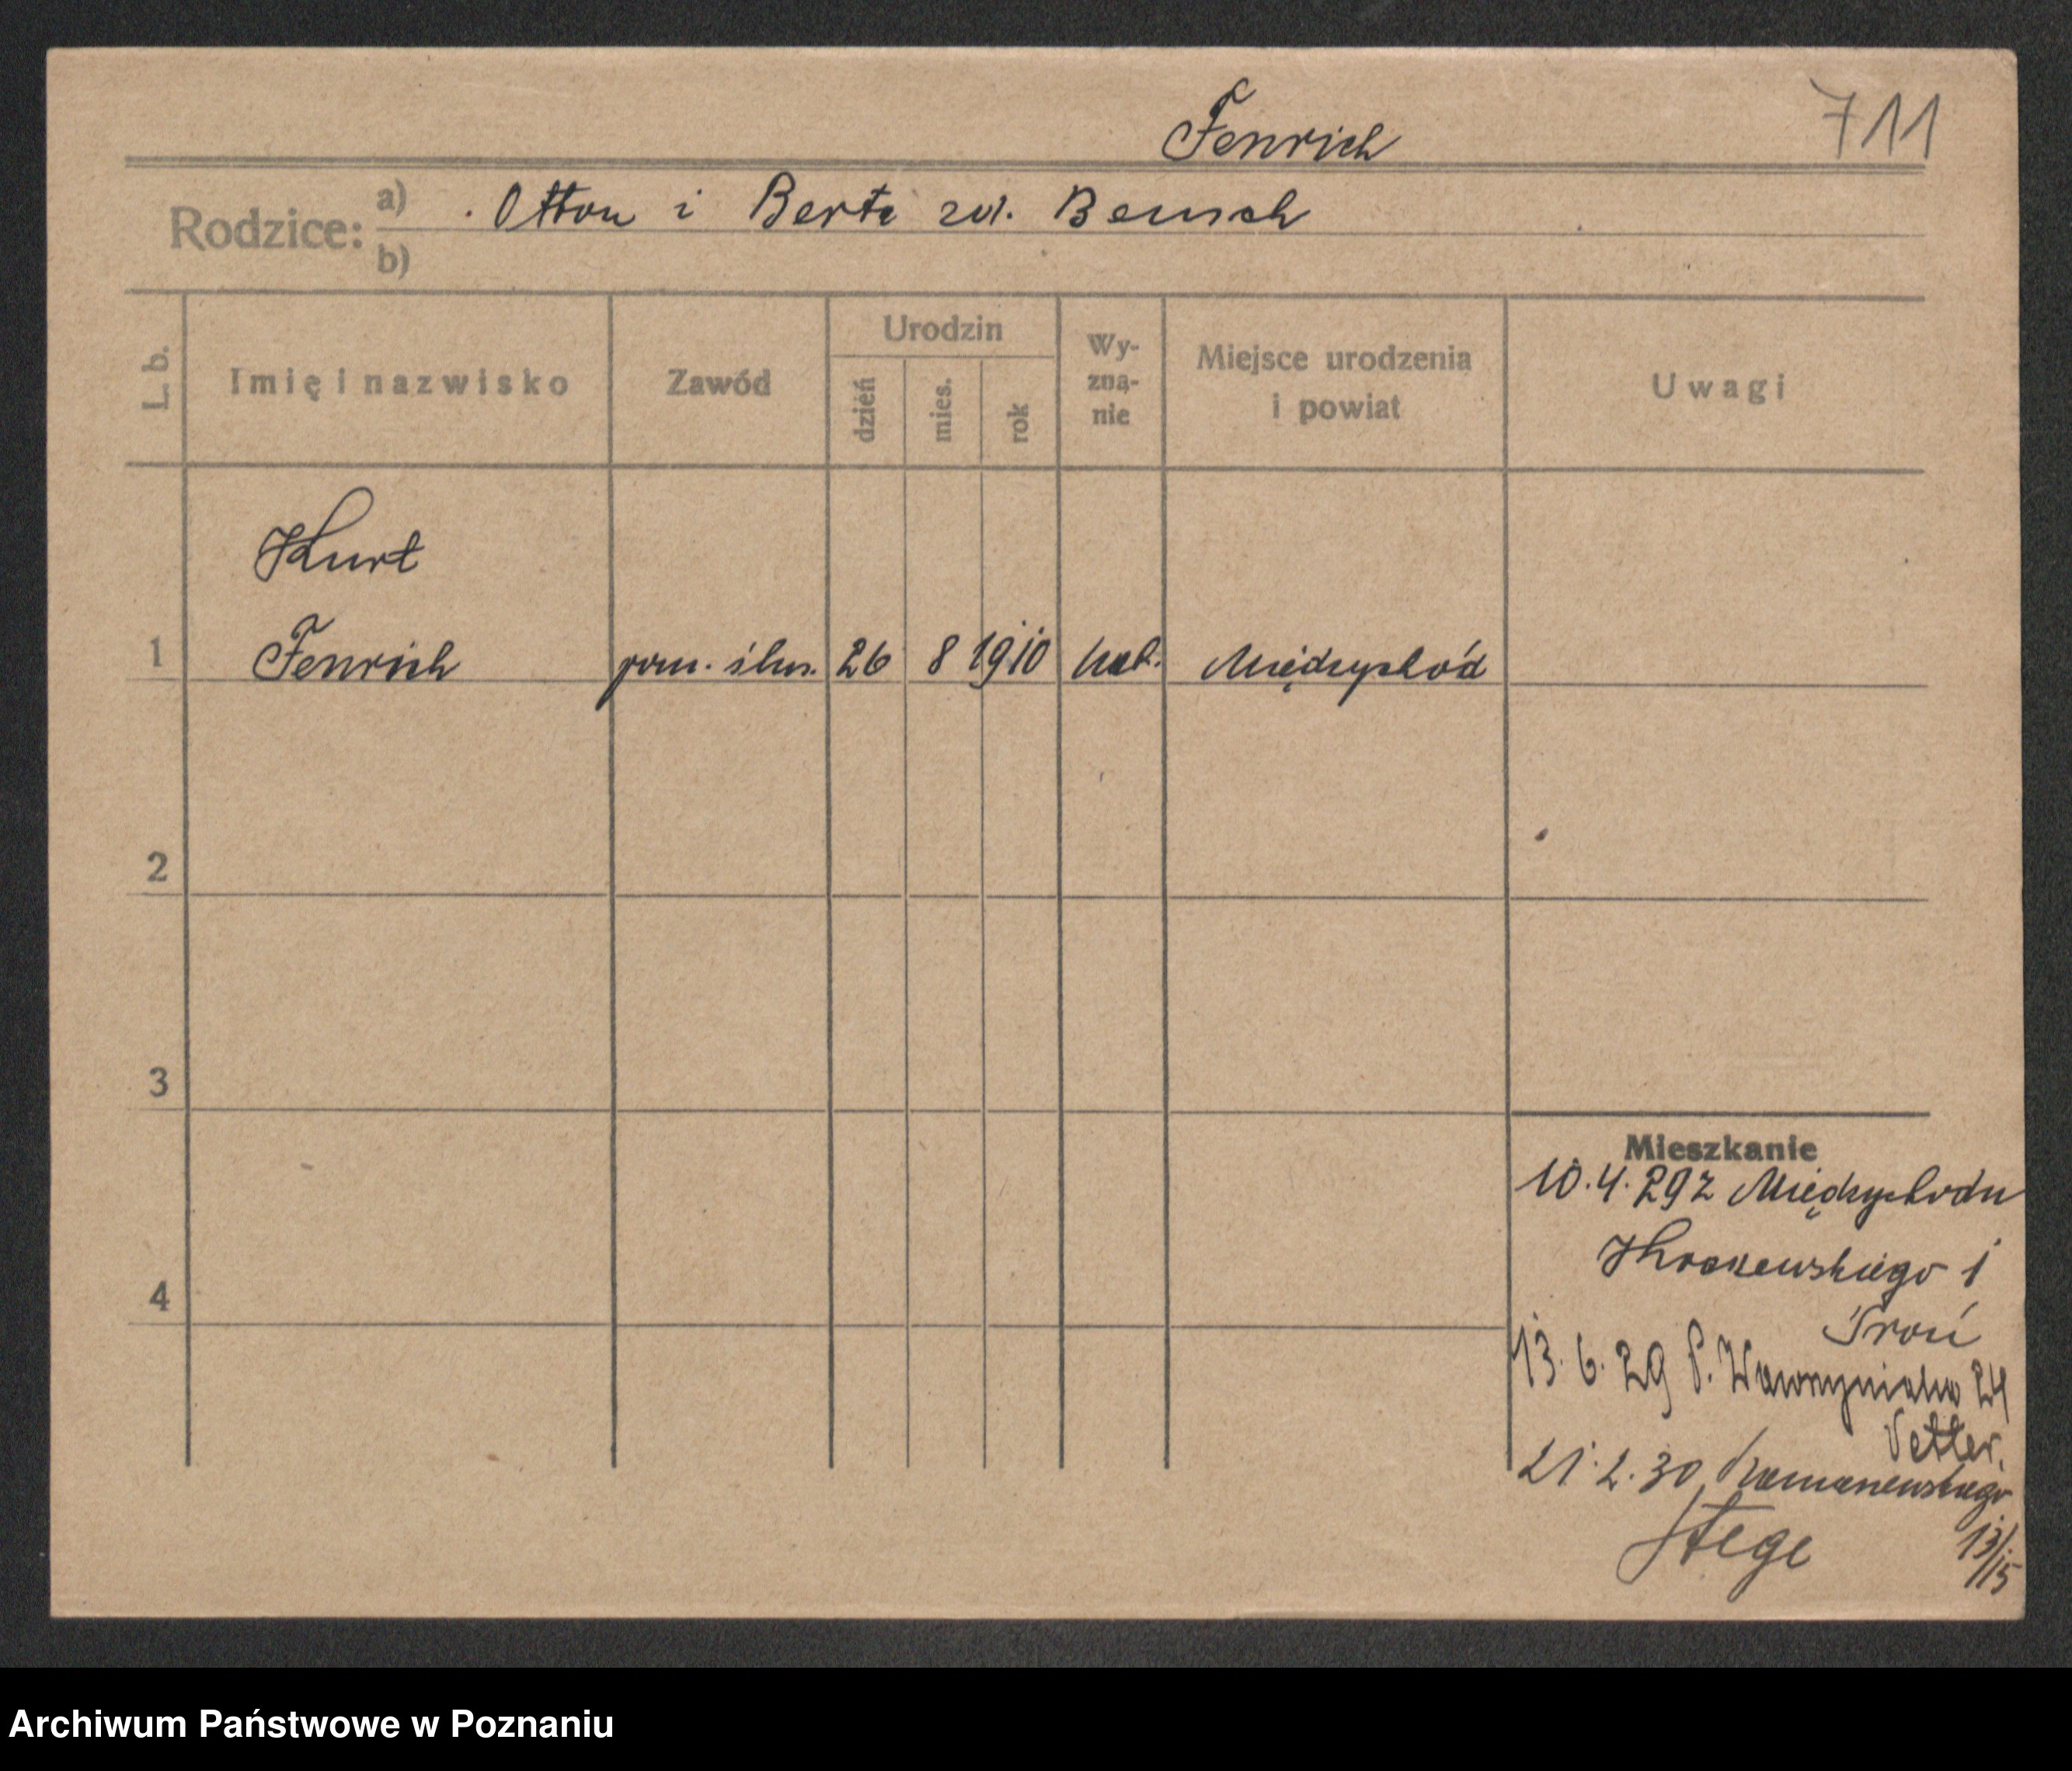 Fenrich
711
Rodzice:
a) Otton i Berta zd. Bensch
b)
L. b.
Imię i nazwisko
Zawód
Urodzin
dzień
mies.
rok
Wy-
zna-
nie
Miejsce urodzenia
i powiat
Uwagi
Kurt
1 Fenrich pom. ślus. 26 8 1910 kat. Międzychód
2
3
4
Mieszkanie
10.4.29 z Międzychodu
1
Troń
13.6.29 P. Wawrzyniaka 24
Vetter.
21.2.30
13/15
Stege
Archiwum Państwowe w Poznaniu